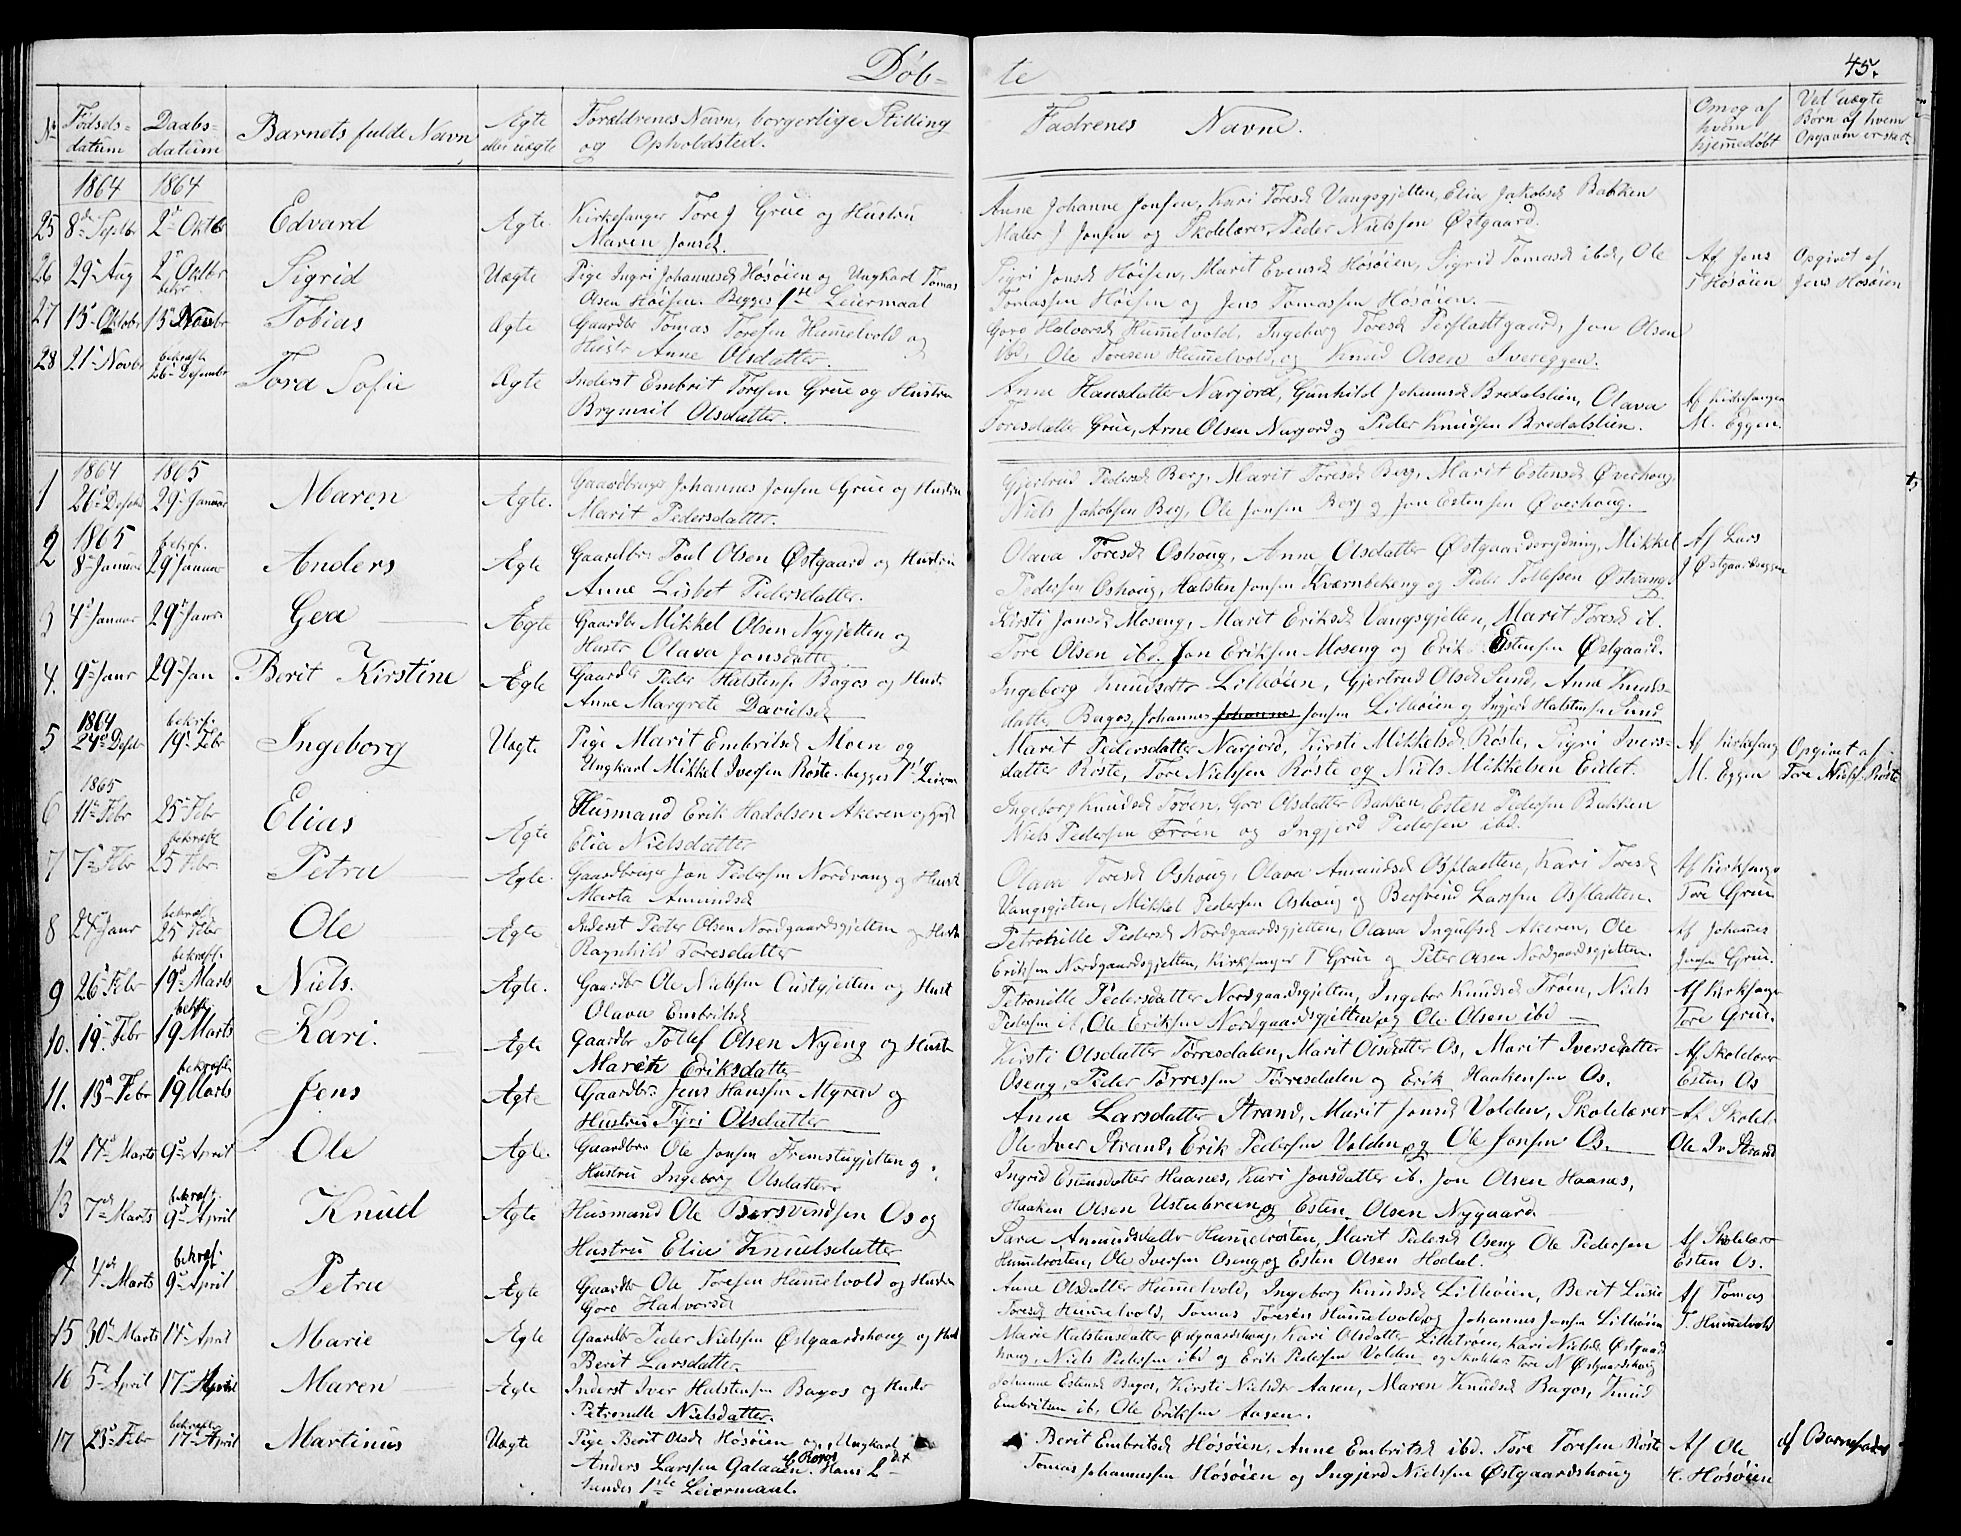 Døb-
te
45.
№
Fødsels-
datum
Daabs-
datum
Barnets fulde Navn
Ægte
eller uægte
Forældrenes Navn, borgerlige Stilling
og Opholdsted.
Fadrenes Navne.
Om og af
hvem
hjemmedøbt
Ved uægte
Børn af hvem
Opgaven er skeet
1864 1864
25 8de Septbr 2d Oktbr Edvard Ægte. Kirkesanger Tore J Grue og Hustru
Maren Jonsd.
Anne Johanne Jonsen, Kari Toresd Vangsgjelten, Elia Jakobsd Bakken
J Jonsen og Skolelærer Peder Nielssen Østgaard.
26 29d Aug 2d Oktbr Sigrid Uægte Pige Ingri Johannesd Høsøien og Ungkarl Tomas
Olsen Høisen. Begges 1ste Leiermaal
Sigri Jonsd Høisen, Marit Evensd Høsøien, Sigrid Tomasd ibd, Ole
Tomassen Høisen og Jens Tomassen Høsøien.
Af Jens
T Høsøien
Opgivet af
Jens Høsøien
27 15d Oktobr 15d Novbr Tobias Ægte Gaardbr Tomas Toresen Hummelvold og
Hustr Anne Olsdatter.
Goro Halvorsd Hummelvold, Ingeborg Toresd Jon Olsen
ibd, Ole Toresen Hummelvold, og Knud Olsen Svereggen.
28 21d Novbr bekræft.
26d Desembr Tora Sofie Ægte Inderst Embrit Toresen Grue og Hustru
Brynnil Olsdatter.
Anne Hansdatter Narjord, Gunhild Johannesd Bredalslien, Olava
Toresdatter Grue, Arne Olsen Narjord og Peder Knudsen Bredalslien.
Af Kirkesanger
M. Eggen.
1864 1865
1 26d Desbr 29d Januar Maren Ægte. Gaardbruger Johannes Jonsen Grue og Hustru
Marit Pedersdatter.
Gjertrud Pedersd Berg, Marit Toresd Berg, Marit Estensd Øverhoug,
Niels Jakobsen Berg, Ole Jonsen Berg og Jon Estensen Øverhoug.
1865
2 8d Januar bekræf.
29 Januar Anders Ægte Gaardbr. Poul Olsen Østgaard og Hustru
Anne Lisbet Pedersdatter.
Olava Toresd Oshoug, Anne Olsdatter Østgaardsrydning, Mikkel
Pedersen Oshoug, Halsten Jonsen Kværnbekeng og Peder Tollefssen Østvang.
Af Lars
J Østgaardseggen
3 4d Januar 29d Janr Gea Ægte Gaardbr Mikkel Olsen Nygjelten og
Hustr Olava Jonsdatter
Kirsti Jonsd Moseng, Marit Eriksd Vangsgjelten, Marit Toresd ib.
Tore Olsen ibd. Jon Eriksen Moseng og Erik Estensen Østgaard.
4. 9d Janr 29d Jan Berit Kirstine Ægte Gaardbr Peder Halstens. Bagos og Hust.
Anne Margrete Davidsd
Ingeborg Knudsdtr Lilleøien, Gjertrud Olsd Sund, Anne Knuds-
datter Bagos, Johannes Johannes Jonsen Lilleøien og Ingjerd Halstensen Sund
1864
5 24d Desbr bekræf.
19d Febr Ingeborg Uægte Pige Marit Embritsd Moen og
Ungkarl Mikkel Iversen Røste. begges 1ste Leierm
Marit Pedersdatter Narjord, Kirsti Mikkelsd Røste, Sigri Ivers-
datter Røste, Tore Nielssen Røste og Niels Mikkelsen Eidet.
Af Kirkesang
M. Eggen
Opgivet af
Tore Niels. Røste
1865
6 11d Febr 25d Febr Elias Ægte Husmand Erik Hadolsen Akeren og Hust
Elia Nielsdatter
Ingeborg Knudsd Trøen, Goro Olsdatter Bakken, Esten Pedersen Bakken
Niels Pedersen Trøen og Ingjerd Pedersen ibd.
7 7d Febr bekræft
25 Febr. Petra Ægte. Gaardbruger Jon Pedersen Nordvang og Hustr
Marta Amundsd
Olava Toresd Oshoug, Olava Amundsd Ospladten, Kari Toresd
Vangsgjelten, Mikkel Pedersen Oshoug og Bersvend Larssen Ospladten.
Af Kirkesange
Tore Grue
8 24d Janr bekræf.
25 Febr Ole Ægte Inderst Peder Olsen Nordgaardsgjelten og Hustr
Ragnhild Toresdatter
Petronille Pedersd Nordgaardsgjelten, Olava Ingulfsd Akeren, Ole
Eriksen Nordgaardsgjelten, Kirksanger T Grue og Peter Olsen Nordgaardsgjelten.
Af Johannes
Jonsen Grue.
9 26d Febr bekræft.
19d Marts Niels. Ægte. Gaardbr Ole Nielssen Oustgjelten og Hust
Olava Embritsd
Petronille Pedersdatter Nordgaardsgjelten, Ingebor Knudsd Trøen, Niels
Pedersen ib, Ole Eriksen Nordgaardsgjelten og Ole Olsen ibd
Af Kirksange
Tore Grue.
10. 19d Febr bekræf.
19 Marts Kari. Ægte Gaardbr Tollef Olsen Nyeng og Hustr
Marit Eriksdatter
Kirsti Olsdatter Tørresdalen, Marit Olsdatter Os, Marit Iversdatter
Oseng, Peder Tørressen Tørresdalen og Erik Haakensen Os.
Af Skolelærer
Esten Os
11. 13d Febr bekræfte
19 Marts Jens Ægte Gaardbr. Jens Hanssen Myren og
Hustru Tyri Olsdatter
Anne Larsdatter Strand, Marit Jonsd Volden, Skolelærer
Ole Iver Strand, Erik Pedersen Volden og Ole Jonsen Os.
Af Skolel.
Ole Iv Strand
12 14d Marts 9d April Ole Ægte. Gaardbr Ole Jonsen Fremstugjelten og
Hustru Ingeborg Olsdatter.
Ingrid Esensdatter Haanes, Kari Jonsdatter ib. Jon Olsen Haanes,
Haaken Olsen Ustubreen og Esten Olsen Nygaard
13 7de Marts bekræf.
9d April Knud Ægte Husmand Ole Bersvendsen Os og
Hustru Elie Knudsdatter
Sara Amundsdatter Hummelrøsten, Marit Pedersd Oseng Ole Pedersen
Hummelrøsten, Ole Iversen Oseng og Esten Olsen Hodal.
Af Skolelærer
Esten Os.
4de Marts bekræf.
9d April Petra Ægte Gaardbr Ole Toresen Hummelvold og Hustru
Goro Halvorsd
Anne Olsdatter Hummelvold, Ingeborg Knudsd Lilleøien, Berit Lusie
Toresd Hummelvold, Tomas Toresen Hummelvold og Johannes Jonsen Lilleøien
Af Tomas
T. Hummelvold
15 30d Marts 17d April Marie Ægte Gaardbr Peder Nielssen Østgaardshoug og Hust
Berit Larsdatter
Marie Halstensdatter Østgaardshoug, Kari Olsdatter Lilletrøen, Kari Nielsd Østgaard
houg, Niels Pedersen ibd og Erik Pedersen Volden og Skolelær Tore N Østgaardshoug
16 5d April 17d April Maren Ægte Inderst Iver Halstensen Bagos og Hustr
Petronelle Nielsdatter.
Johanne Estensd Bagos, Kirsti Nielsdtr Aasen, Maren Knudsd Bagos, Knud
Embritsen ib. Ole Eriksen Aasen.
17 23d Febr bekræftet
17d April Martinus Uægte Pige Berit Olsd Høsøien og Ungkarl
Anders Larssen Galaaen af Røros. Hans 2det
hendes 1ste Leiermaal.
Berit Embritsd Høsøien, Anne Embritsd ibd. Tore Toresen Røste
Tomas Johannessen Høsøien og Ingjerd Nielssen Østgaardshoug
Af Ole
H. Høsøien
af Barnefader